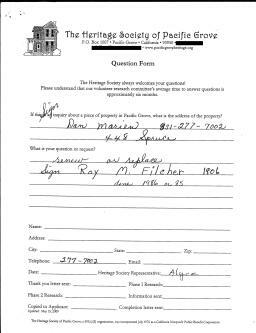 The Heritage Society of Pacific Grove
P.O. Box 1007 • Pacific Grove • California • 93950
• www.pacificgroveheritage.org
Question Form
The Heritage Society always welcomes your questions!
Please understand that our volunteer research committee's average time to answer questions is
approximately six months.
Sign
If this inquiry about a piece of property in Pacific Grove, what is the address of the property?
Dan 831-277-7002
448 Spruce
What is your question or request?
renew or replace
Sign Ray M. Filcher 1906
done 1986 or 85
Name:
Address:
City: State: Zip:
Telephone: 277-7002 Email:
Date: Heritage Society Representative: Alyce
Thank you letter sent: Phase 1 Research:
Phase 2 Research: Information sent:
Copied to Applicant: Completion letter sent:
Updated: May 19, 2009
The Heritage Society of Pacific Grove, a 501(c)(3) organization, was incorporated July 1976 as a California Nonprofit Public Benefit Corporation.